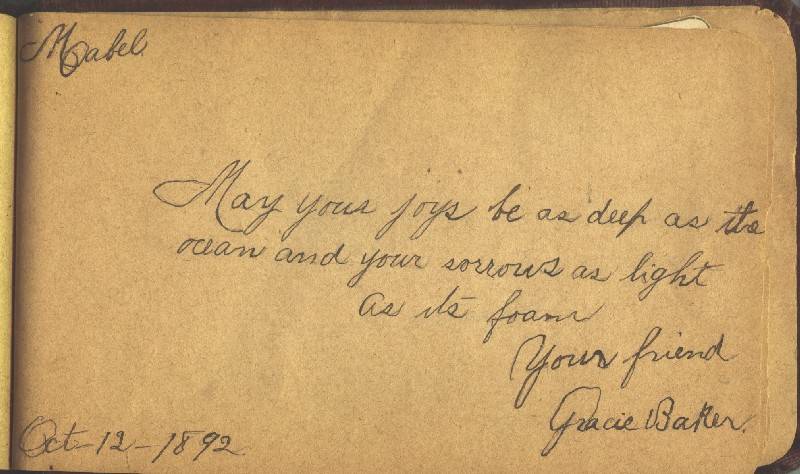 Mabel.
May your joys be as deep as the
ocean and your sorrows as light
As its foam
Your friend
Gracie Baker.
Oct-12-1892